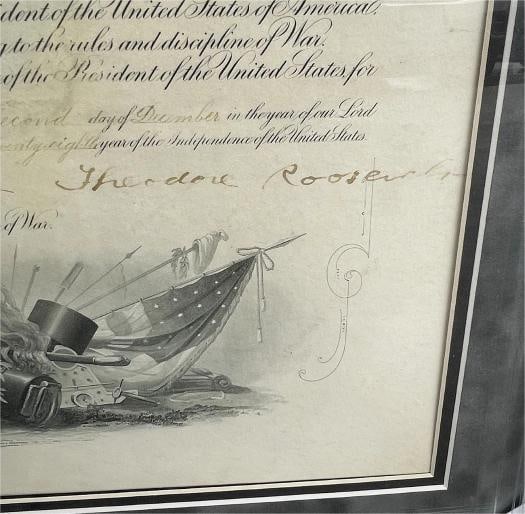 ident of the United States of America,
g to the rules and discipline of War.
of the President of the United States, for
econd day of December in the year of our Lord
wenty-eighth year of the Independence of the United States.
Theodore Roosevelt
of War.